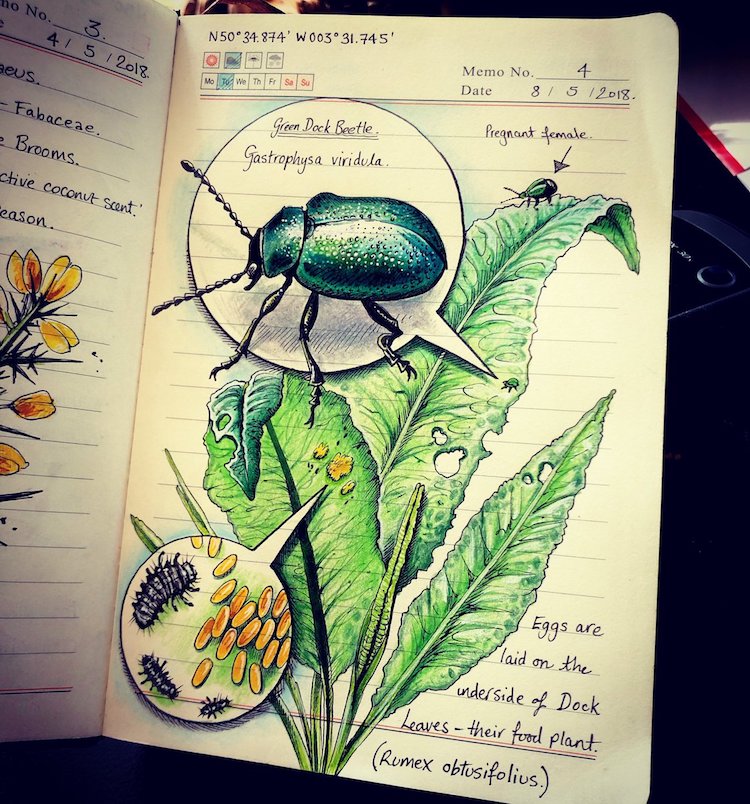 mo No. 3.
4 / 5 / 2018.
aeus.
- Fabaceae.
e Brooms.
ctive coconut scent.'
eason.
N50°34.874' W003°31.745'
Mo Tu We Th Fr Sa Su
Memo No. 4
Date 8 / 5 / 2018.
Green Dock Beetle.
Gastrophysa viridula.
Pregnant female.
Eggs are
laid on the
underside of Dock
Leaves - their food plant.
(Rumex obtusifolius.)